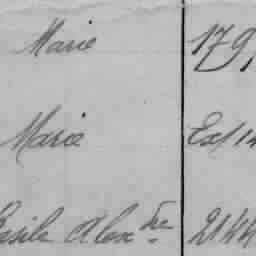 Marie 179
Marie Ext 14
Basile Alex dre 2144